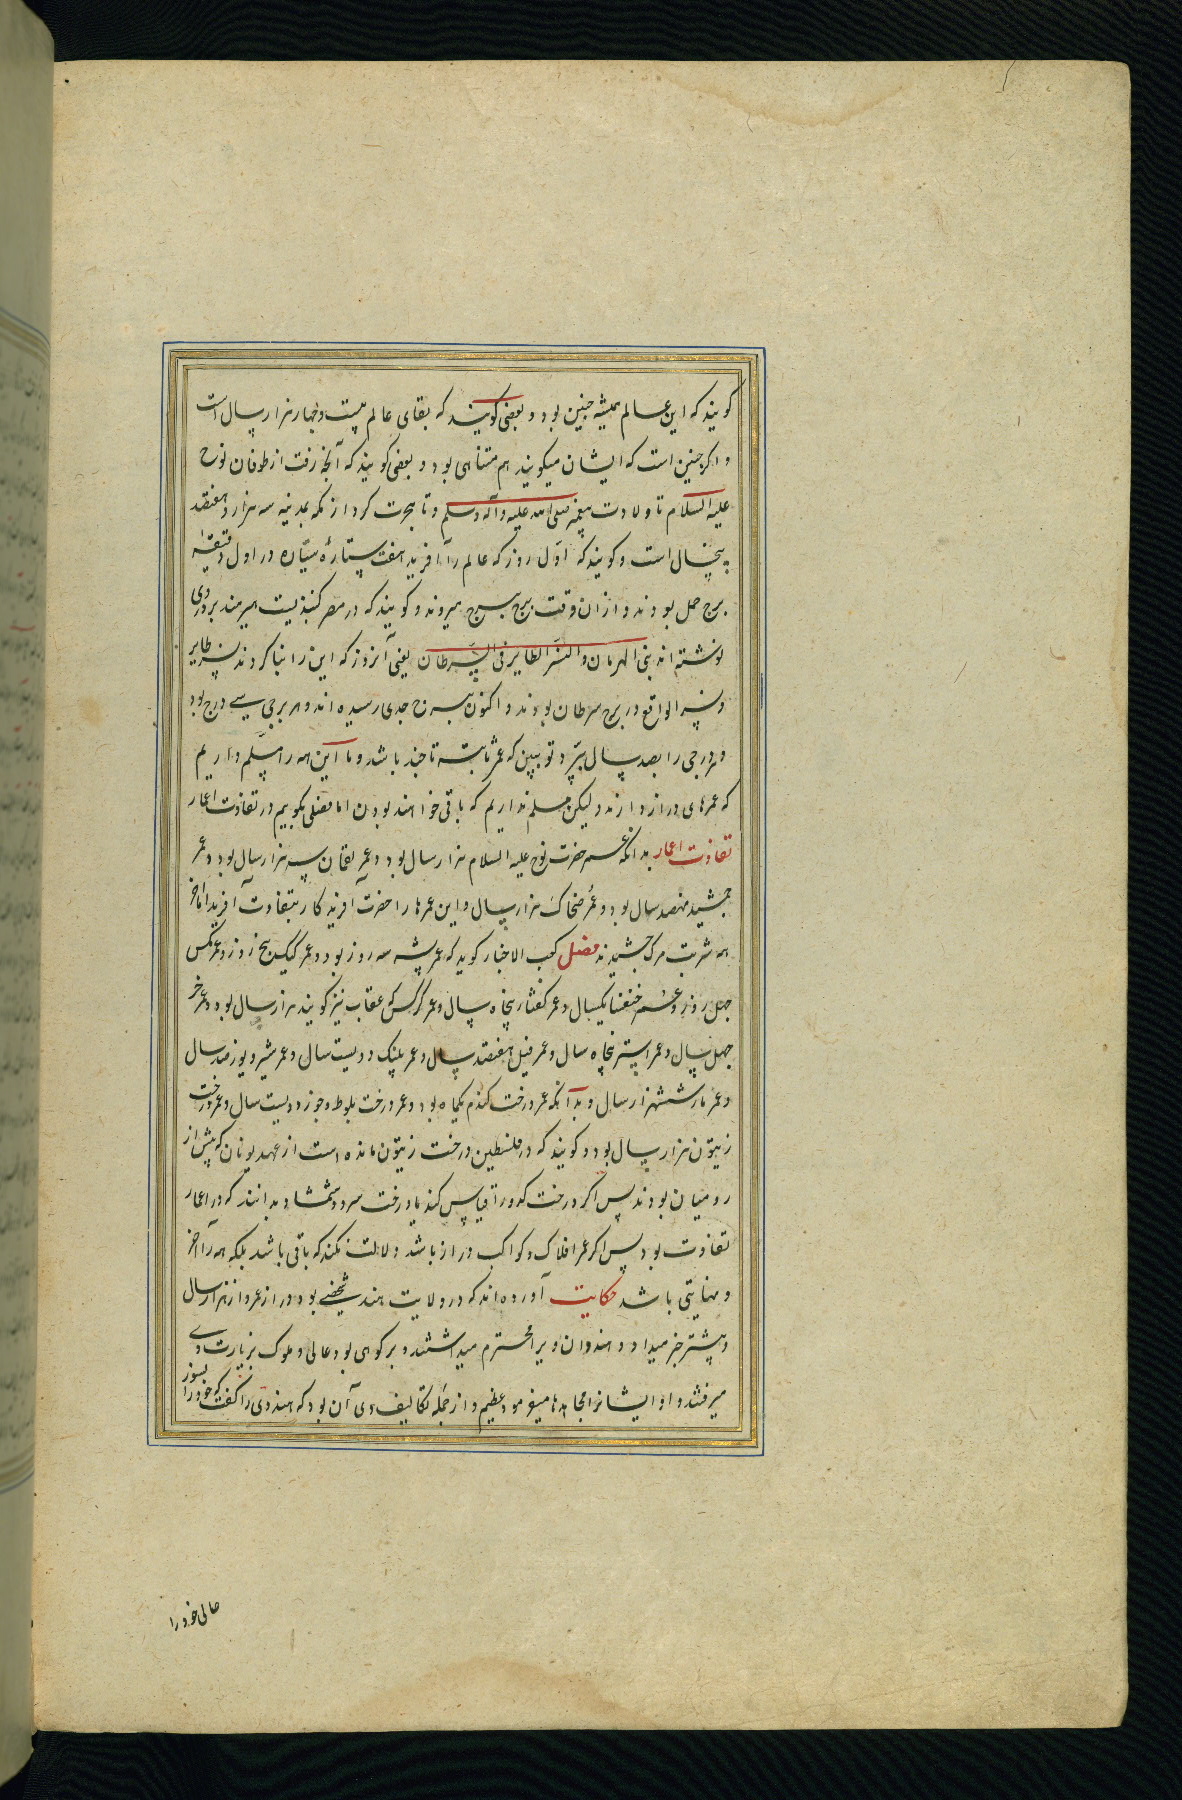 کویند که این عالم همیشه چنین بود و بعضی کویند که بقای عالم بیست و چهار هزار سال است
و اکر چنین است که ایشان میکویند هم متناهی بود و بعضی کویند که آنچه رفت از طوفان نوح
علیه السلام تا ولادت پیغمبر صلی الله علیه وآله وسلم و تا هجرت کرد از مکه بمدینه سه هزار و هفتصد
پنجسال است و کویند که اول روز که عالم را آفرید هفت ستارهٔ سیّاره در اول دقیقهٔ
برج حمل بودند و از ان وقت برج ببرج میروند و کویند که در مصر کنبذیست هرمند بر وی
نوشته اند بنی الهرمان والنسر الطایر فی السرطان یعنی آنروز که این را بنا کردند نسر طایر
و نسر الواقع در برج سرطان بودند و اکنون ببرج جدی رسیده اند و هر برجی سی درج بود
و هر درجی را بصد سال ببرّد تو ببین که عمر ثابته تا چند باشد و ما این همه را مسلّم داریم
که عمرهای دراز دارند ولیکن مسلم نداریم که باقی خواهند بودن اما فصلی بکوییم در تفاوت اعمار
تفاوت اعمار بدانکه عمر حضرت نوح علیه السلام هزار سال بود و عمر لقمان سه هزار سال بود و عمر
جمشید هفتصد سال بود و عمر ضحاک هزار سال و این عمرها را حضرت آفریدکار بتفاوت آفرید اما آخر
همه شربت مرک چشیدند فصل کعب الاخبار کوید که عمر پشه سه روز بود و عمر کیک پنج روز و عمر مکس
چهل روز و عمر خنفسا یکسال و عمر کفتار پنجاه سال و عمر کرکس که عقاب نیز کویند هزار سال بود و عمر خر
چهل سال و عمر استر پنجاه سال و عمر فیل هفتصد سال و عمر پلنک دویست سال و عمر شیر و یوز صد سال
و عمر مار ششهزار سال و بدانکه عمر درخت کندم یکماه بود و عمر درخت بلوط و جوز دویست سال و عمر درخت
زیتون هزار سال بود و کویند که در فلسطین درخت زیتون مانده است از عهد یونان که پیش از
رومیان بودند پس اکر درخت کدو را قیاس کند با درخت سرو و شمشاد بدانند که در اعمار
تفاوت بود پس اکر عمر افلاک و کواکب دراز باشد دلالت نکند که باقی باشد بلکه همه را آخر
و نهایتی باشد حکایت آورده اند که در ولایت هند شخصی بود دراز عمر و از هزار سال
و پیشتر خبر میداد و هندوان ویرا محترم میداشتند و بر کوهی بود عالی و ملوک بزیارت وی
میرفتند و او ایشانرا مجاهدها میفرمود عظیم و از جمله تکالیف وی آن بود که هندوی را کفت که خود را بسوز
حالی خود را